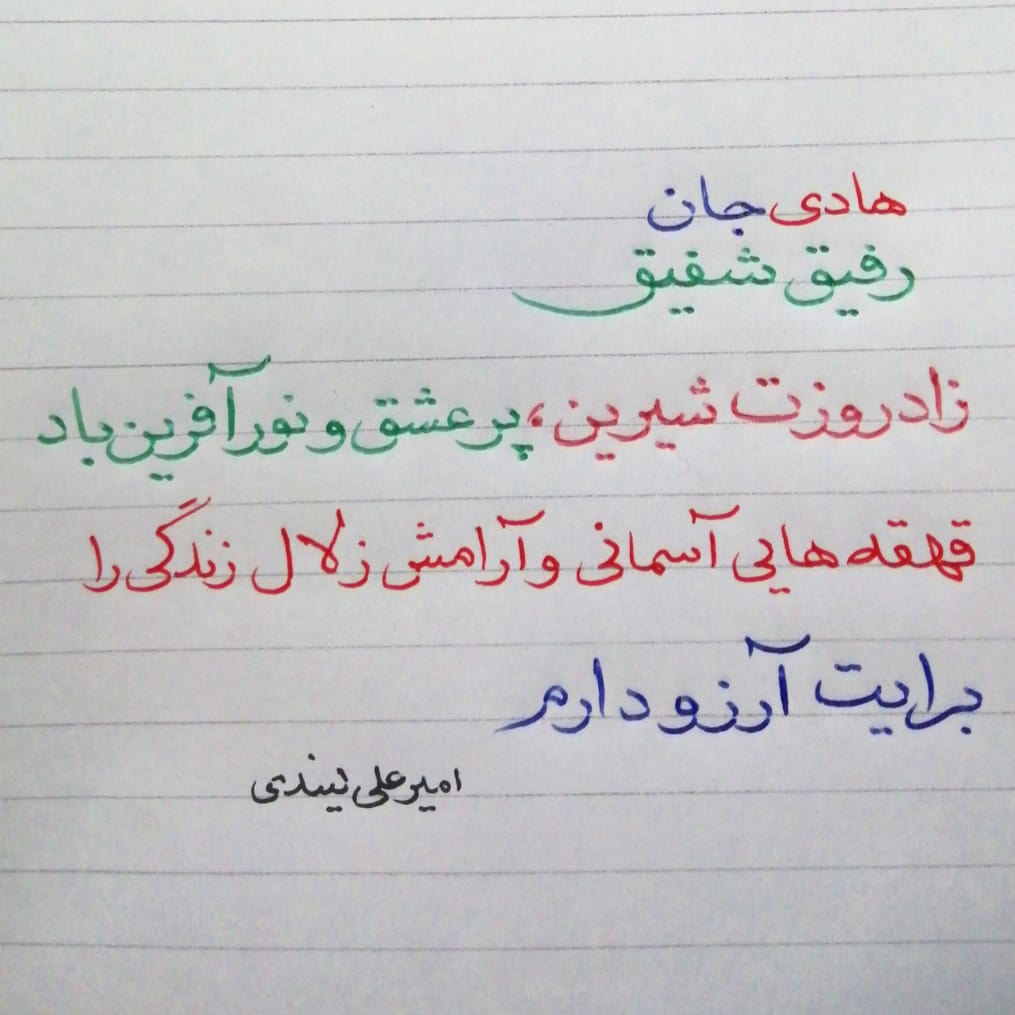 هادی جان
رفیق شفیق
زادروزت شیرین، پر عشق و نور آفرین باد
قهقه هایی آسمانی و آرامش زلال زندگی را
برایت آرزو دارم
امیر علی